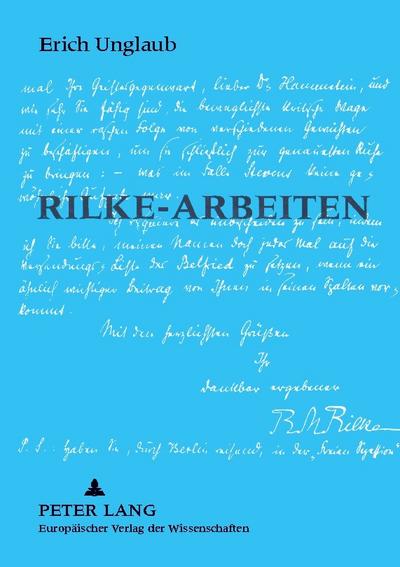 Erich Unglaub
mal Ihre Geistesgegenwart, lieber Dr. Hammerstein, und
wie sehr Sie fähig sind, die beweglichste kritische Wage
mit einer raschen Folge von verschiedenen Gewichten
zu beschäftigen, um sie schließlich zur genauesten Ruhe
zu bringen: – was im Falle
RILKE-ARBEITEN
unbescheiden zu sein, indem
ich Sie bitte, meinen Namen doch jedes Mal auf die
Versendungs-Liste der zu setzen, wenn ein
ähnlich wichtiger Beitrag von Ihnen in seinen Spalten vor-
kommt.
Mit den herzlichsten Grüßen
Ihr
dankbar ergebener
RMRilke
P. S.: Haben Sie, durch Berlin reisend, in der „Freien Sezession"
PETER LANG
Europäischer Verlag der Wissenschaften